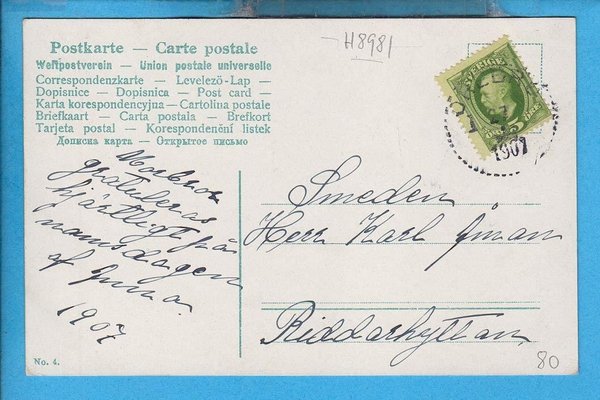 H8981
Postkarte — Carte postale
Weltpostverein — Union postale universelle
Correspondenzkarte — Levelező-Lap —
Dopisnice — Dopisnica — Post card —
Karta korespondencyjna — Cartolina postale
Briefkaart — Carta postala — Brefkort
Tarjeta postal — Korespondenční listek
Дописна карта — Открытое письмо
SVERIGE
1907
gratuleras
hjärtligt på
namnsdagen
af
1907
Smeden
Herr Karl
Riddarhyttan.
No. 4.
80